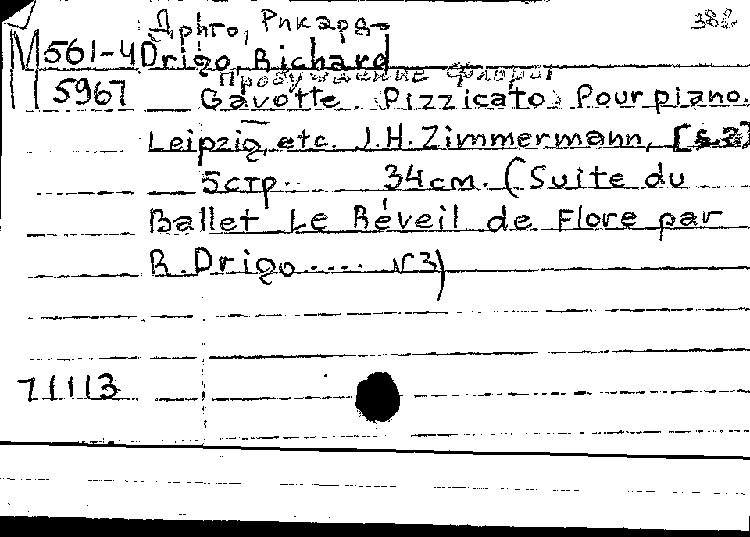 Дриго, Рикард
388
М561-4 Drigo, Richard
Пробуждение Флоры
5967 Gavotte. Pizzicato. Pour piano.
Leipzig, etc. J.H. Zimmermann, [s.a]
5 стр. 34 cm. (Suite du
Ballet Le Réveil de Flore par
R. Drigo .... N3)
71113